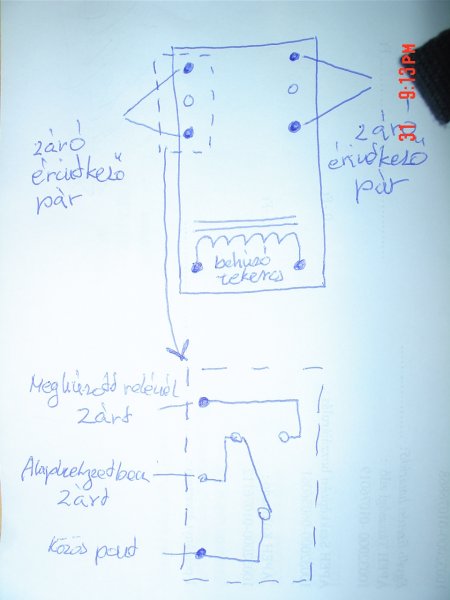 31 9:13PM
záró
érintkező
pár
záró
érintkező
pár
behúzó
tekercs
Meghúzott relénél
Zárt
Alaphelyzetben
Zárt
Közös pont